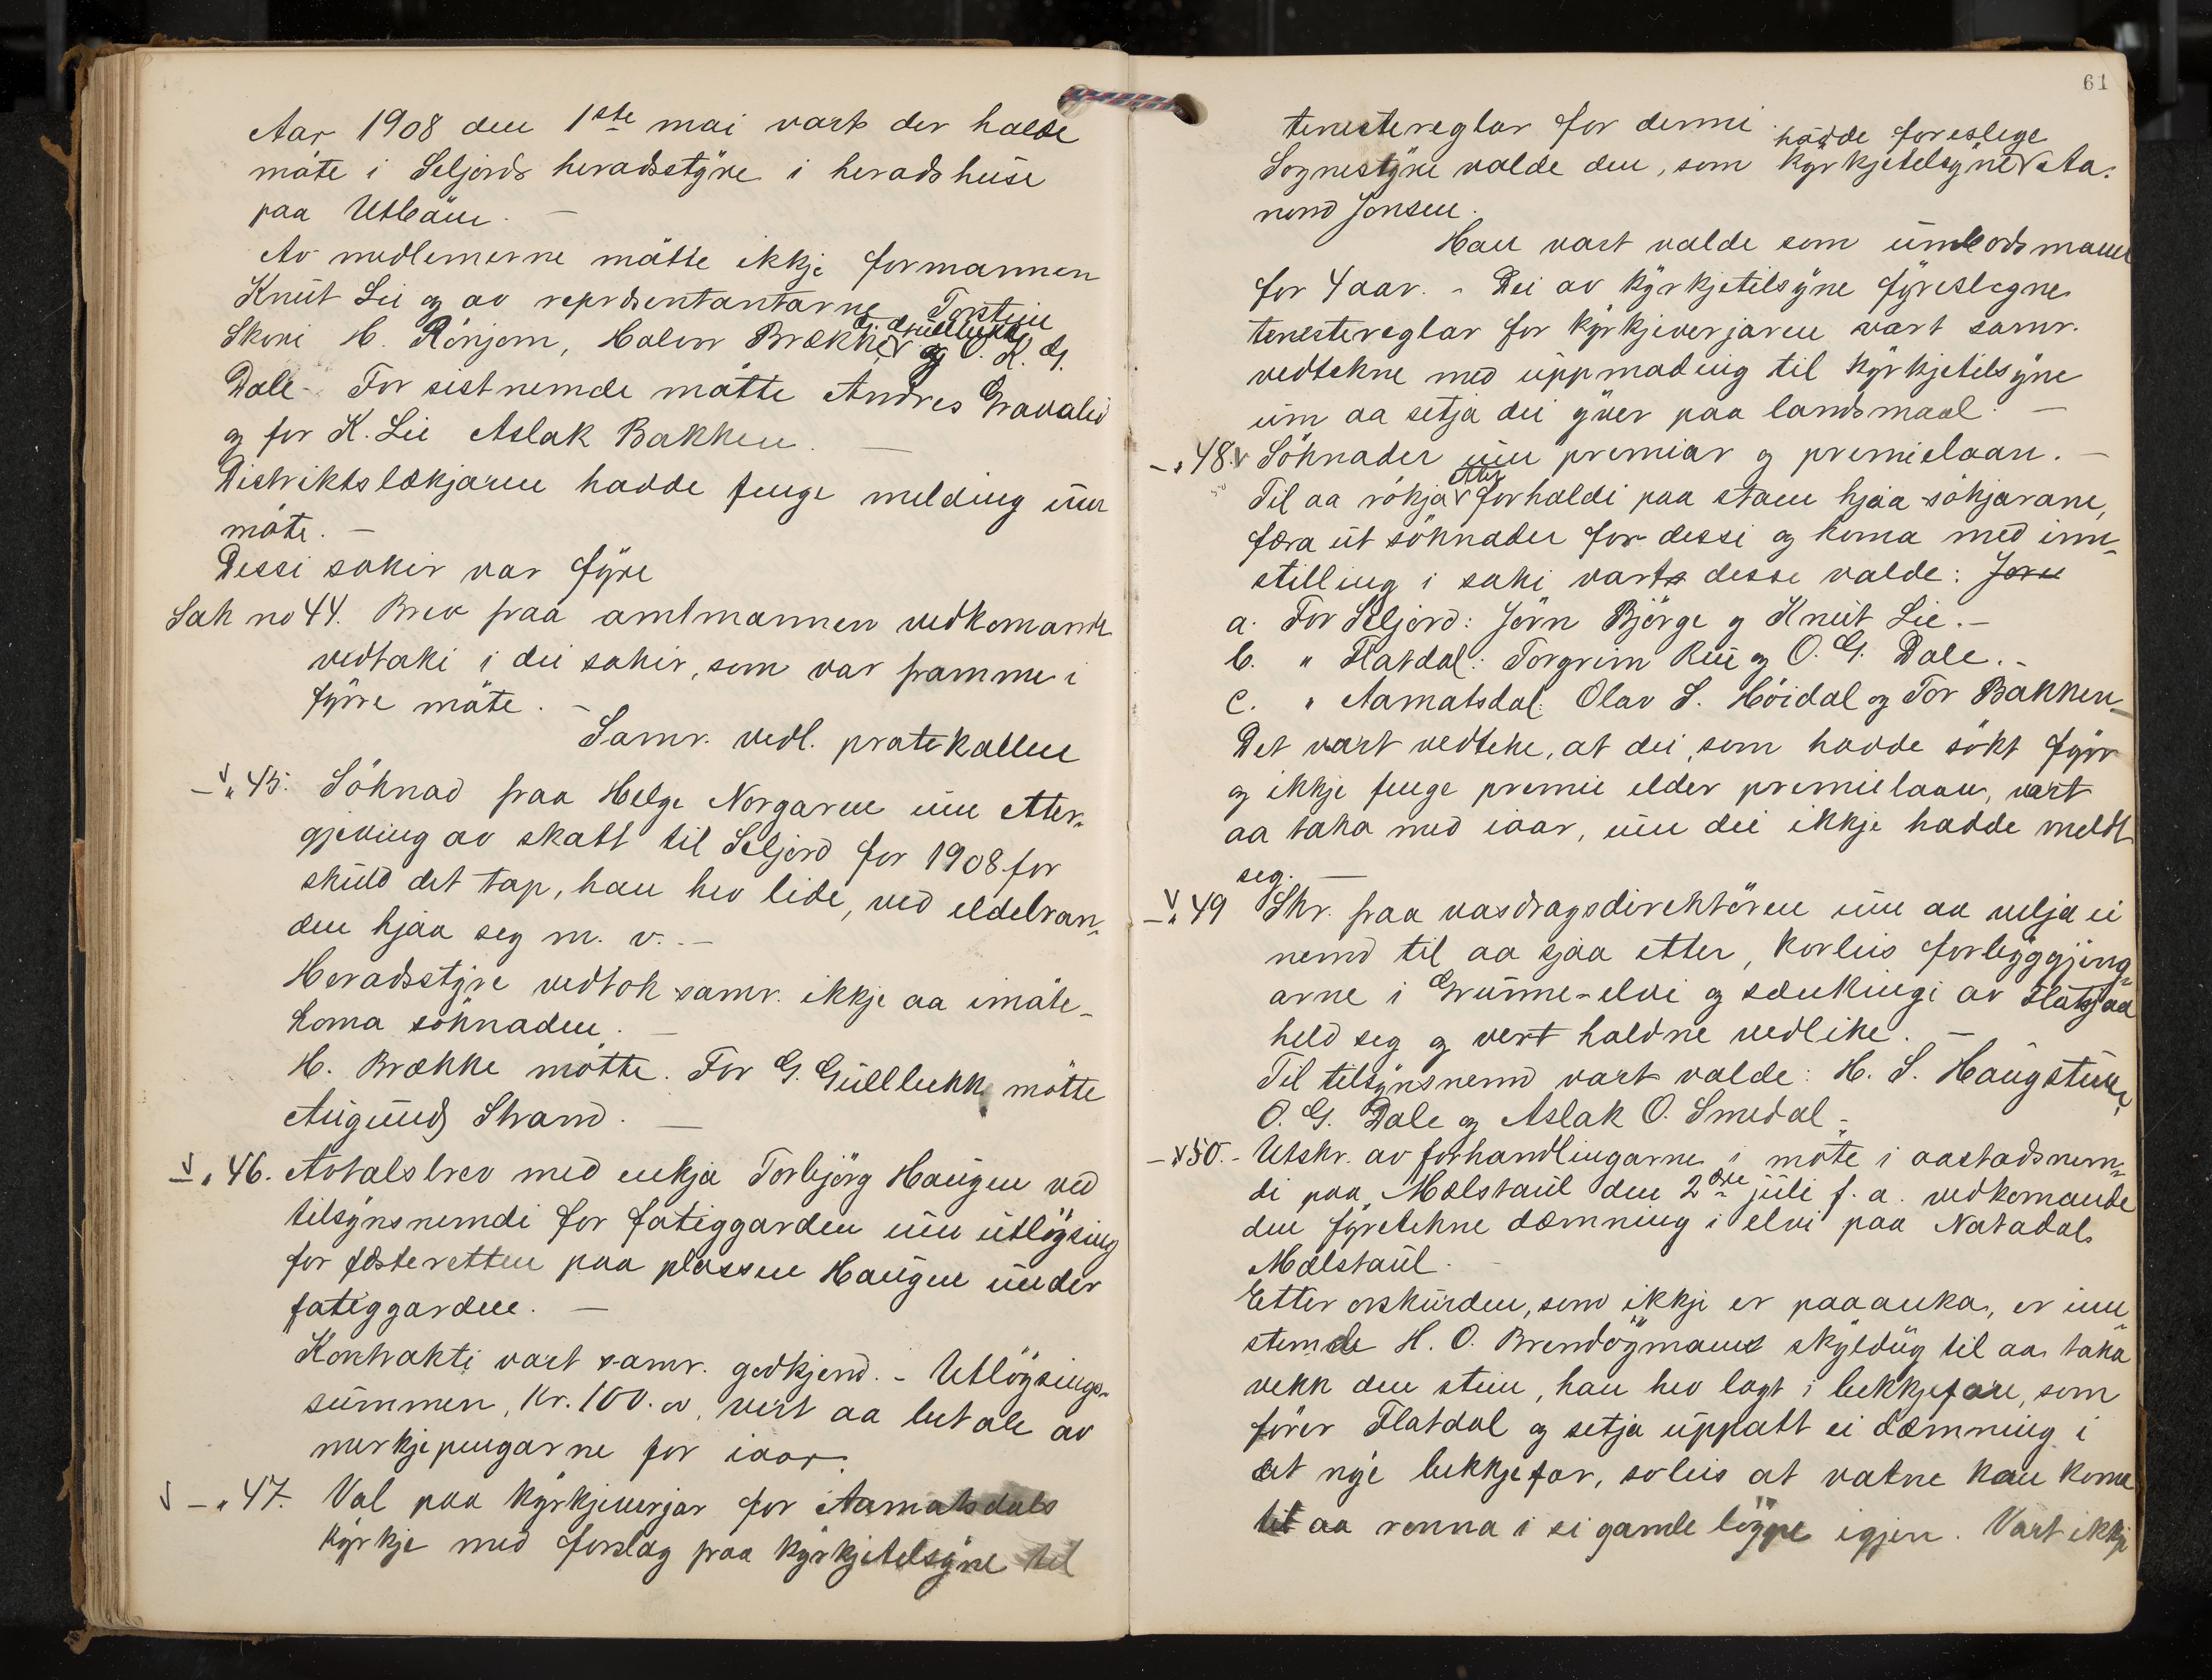 Aar 1908 den 1ste mai vart der halde
möte i Seljords heradsstyre i heradshuse
paa Utbäen. –
Av medlemerne mötte ikkje formannen
Knut Lie og av repræsentantarne Torstein
Skori H. Rönjom, Halvor Brække, G. Gullbekk og O. K. G.
Dale – For sistnemde mötte Andres Gravalid
og for K. Lie Aslak Bakken. –
Distriktslækjaren hadde fenge melding um
möte. –
Dessi sakir var fyre
Sak no 44. Brev fraa amtmannen vedkomande
vedtaki i dei sakir, som var framme i
fyrre möte. –
Samr. vedl. protokollen
– " 45. Söknad fraa Helge Norgaren um etter-
gjeving av skatt til Seljord for 1908 for
skuld det tap, han hev lide, ved eldebran-
den hjaa seg m. v. –
Heradsstyre vedtok samr. ikkje aa imöte-
koma söknaden. –
H. Brække mötte. For G. Gullbekk mötte
Augund Strand. –
– " 46. Avtalsbrev med enkja Torbjörg Haugen ved
tilsynsnemdi for fatiggarden um utlöysing
for festeretten paa plassen Haugen under
fatiggarden. –
Kontrakti vart samr. godkjend. – Utlöysings-
summen, Kr. 100.00, vert aa betale av
merkjepengarne for iaar.
– " 47. Val paa kyrkjeverjar for Aamotsdals
kyrkje med forslag fraa kyrkjetilsyne til
61
tenestereglar for denni.
Sognestyre valde den, som kyrkjetilsyne hadde foreslege Aa-
nond Jonsen.
Han vart valde som umbodsmann
for 4 aar. – Dei av kyrkjetilsyne fyreslegne
tenestereglar for kyrkjeverjaren vart samr.
vedtekne med uppmoding til kyrkjetilsyne
um aa setja dei yver paa landsmaal. –
– " 48. Söknader um premiar og premielaan. –
Til aa rökja etter forholdi paa staen hjaa sökjarane,
færa ut söknader for dessi og koma med inn-
stilling i saki vart desse valde: Jorn
a. For Seljord: Jörn Björge og Knut Lie. –
b. " Flatdal: Torgrim Rui og O. G. Dale. –
c. " Aamotsdal: Olav S. Höidal og Tor Bakken –
Det vart vedteke, at dei, som hadde sökt fyrr
og ikkje fenge premie elder premielaan, vart
aa taka med iaar, um dei ikkje hadde meldt
seg. –
– " 49 Skr. fraa vasdragsdirektören um aa velja ei
nemd til aa sjaa etter, korleis forbyggjing-
arne i Grunne-elvi og senkingi av Flatsjaa
held seg og vert haldne vedlike. –
Til tilsynsnemd vart valde: H. S. Haugstuen,
O. G. Dale og Aslak O. Smedal –
– " 50. – Utskr. av forhandlingarne i möte i aastadsnem-
di paa Mælstaul den 2dre juli f. a. vedkomande
den fyretekne dæmning i elvi paa Natadal
Mælstaul. –
Etter orskurden, som ikkje er paaanka, er inn-
stemde H. O. Brendöymann skyldug til aa taka
vekk den stein, han hev lagt i bekkjefare, som
förer Flatdal og setja uppatt ei dæmning i
det nye bekkjefar, soleis at vatne kan koma
til aa renna i si gamle löype igjen. Vart ikkje